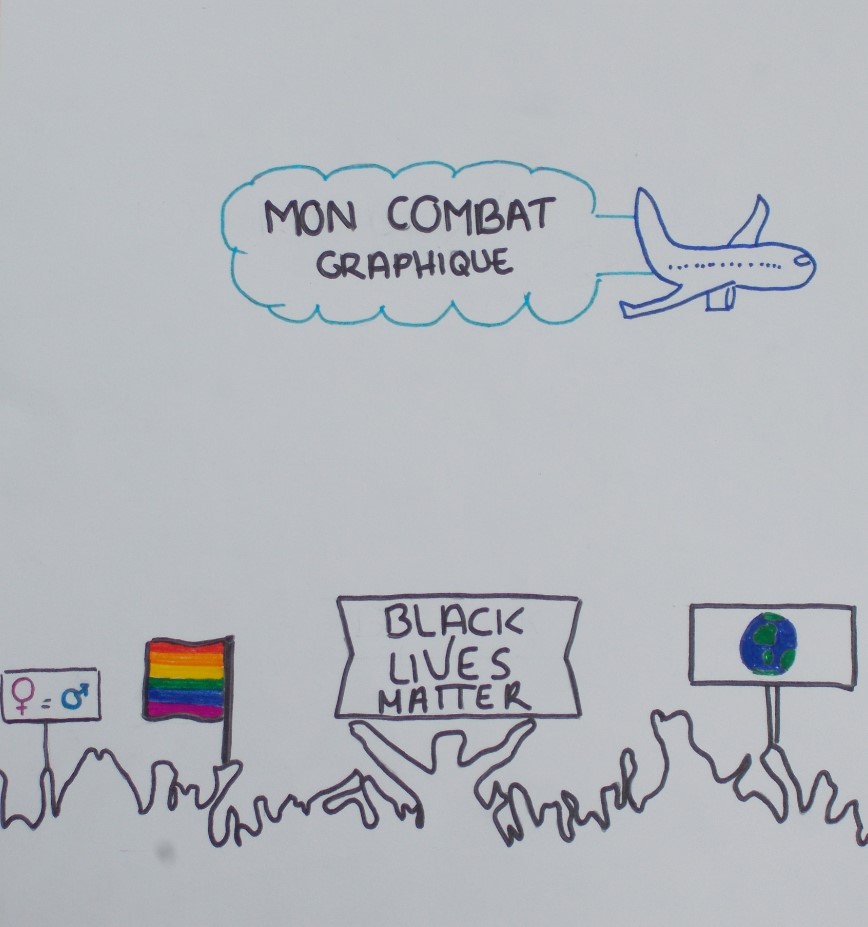 MON COMBAT
GRAPHIQUE
♀ = ♂
BLACK
LIVES
MATTER